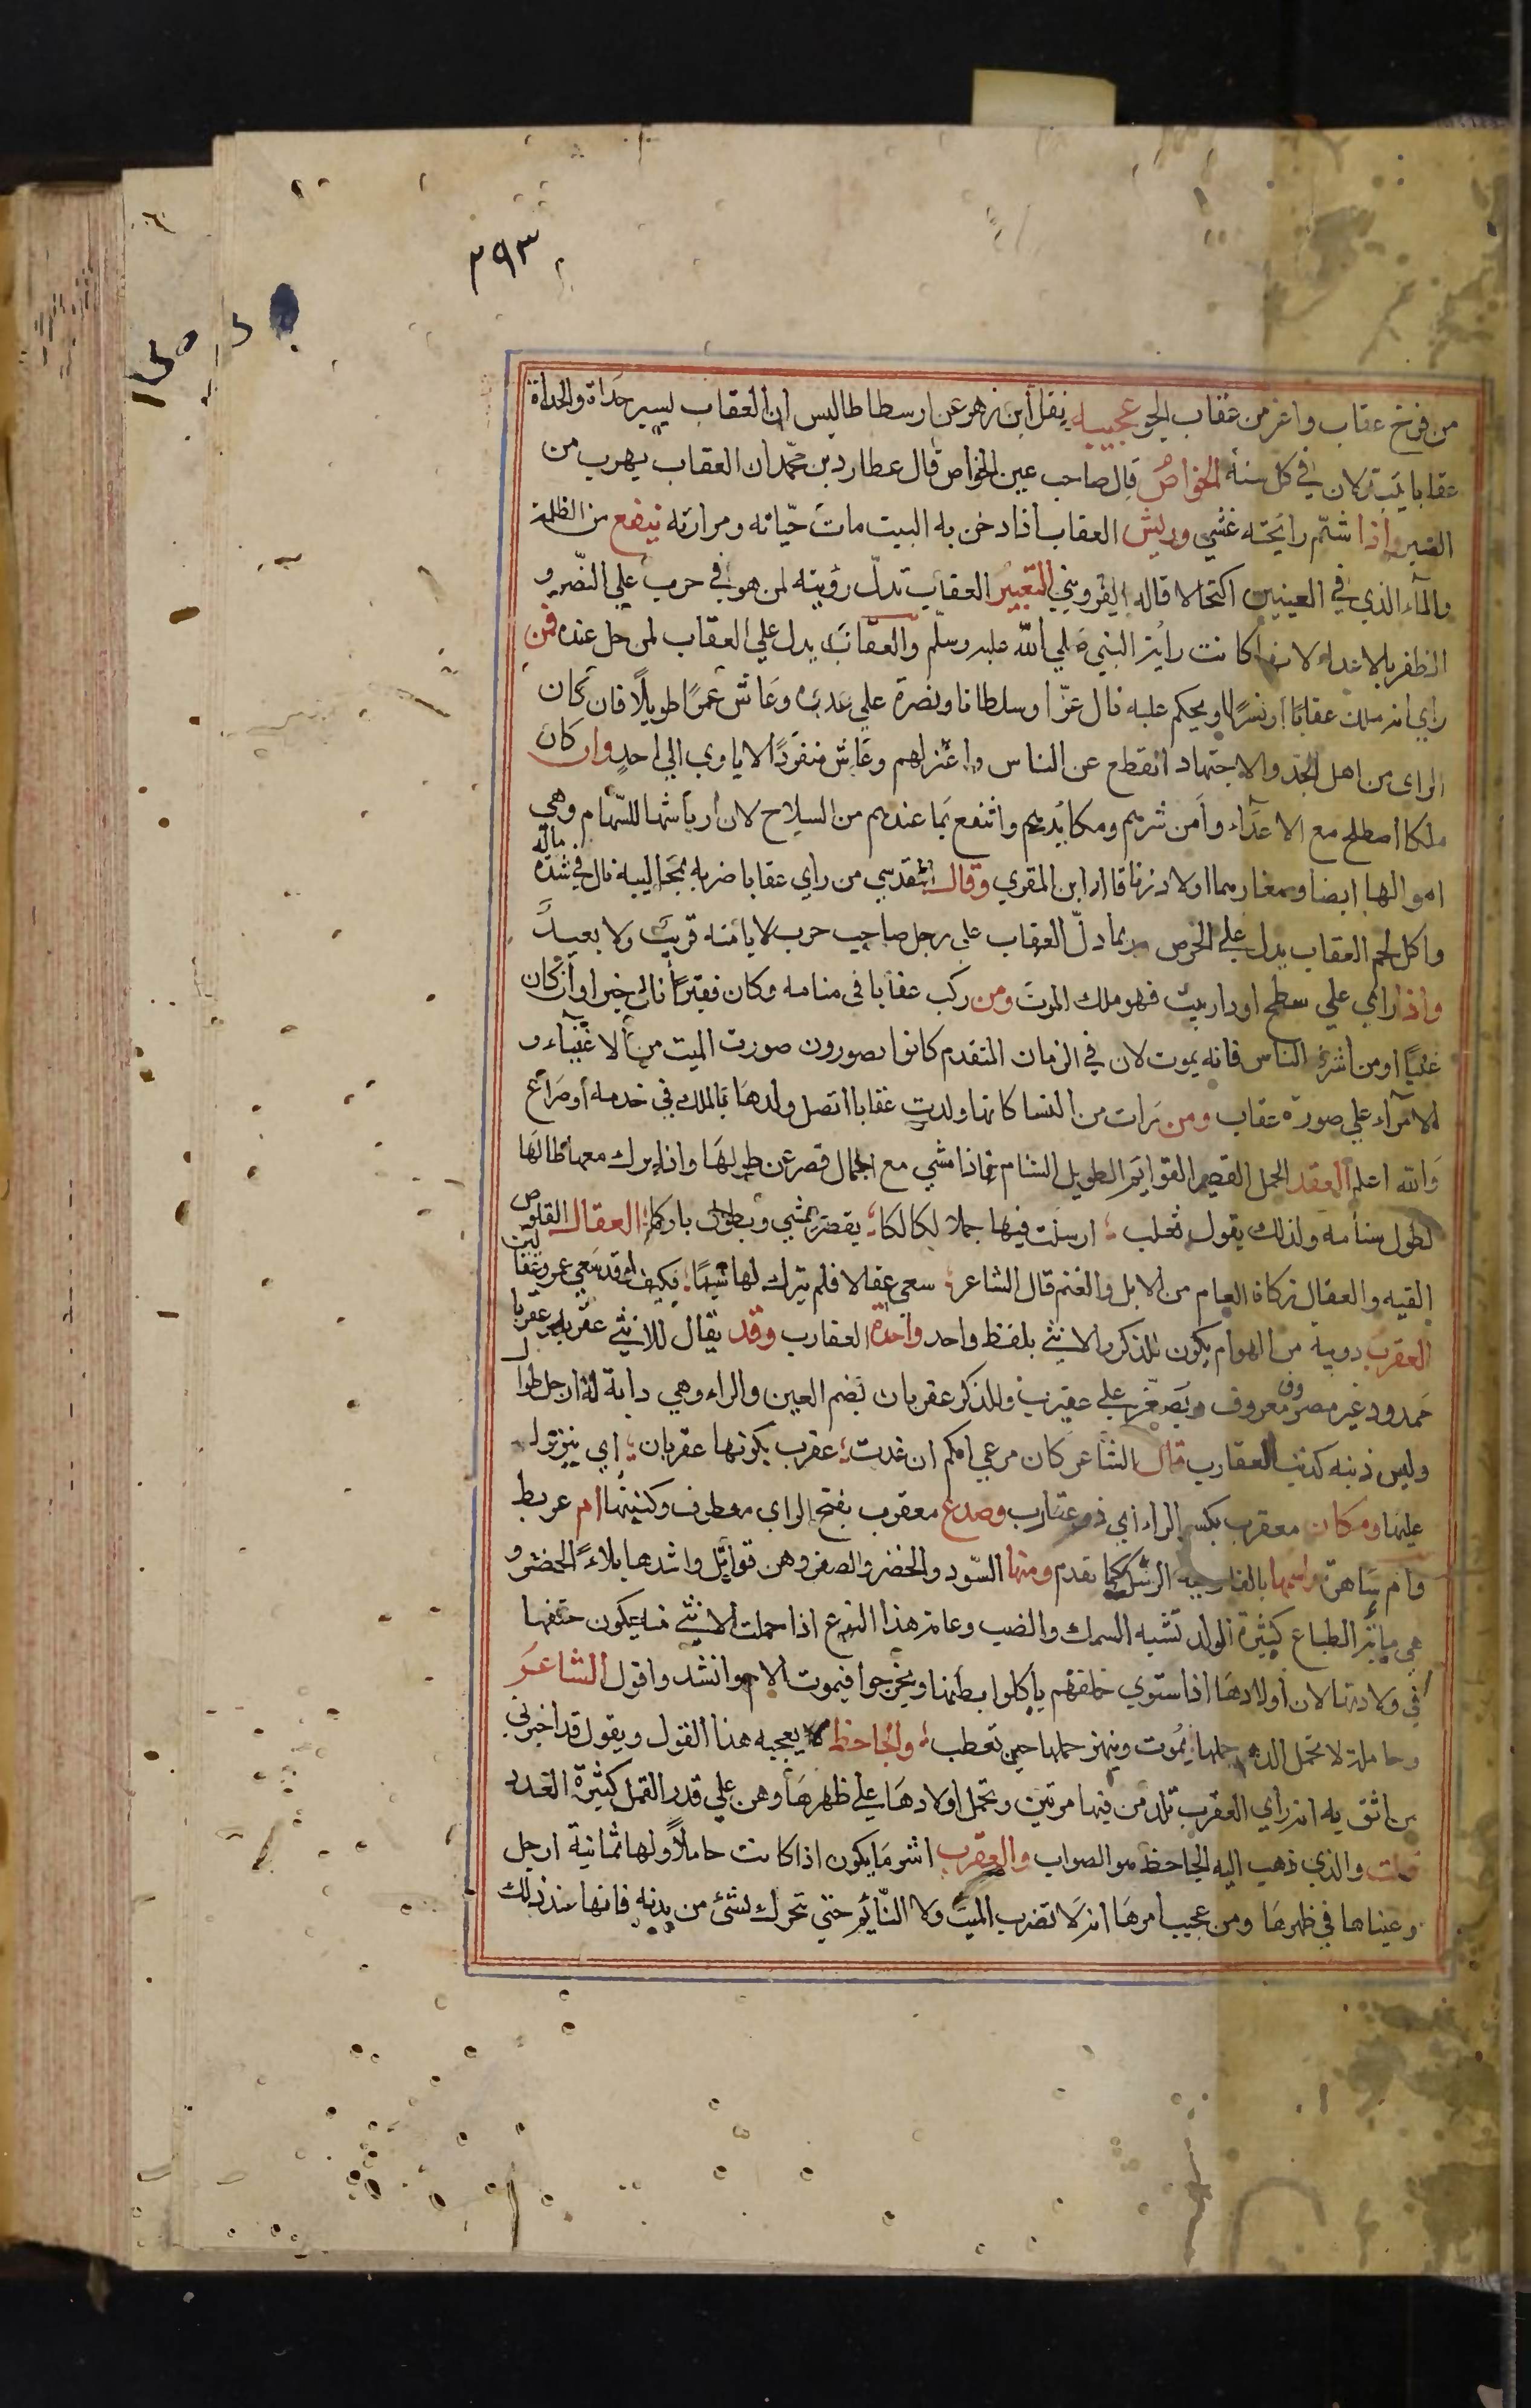 ٢٩٣
من فرخ عقاب واعز من عقاب الجو عجيبه نقل ابن زهر عن ارسطاطاليس ان العقاب يصير حداة والحداة
عقابا يتبدلان في كل سنة الخواص قال صاحب عين الخواص قال عطارد بن محمد ان العقاب يهرب من
الصبر واذا شتم رايحته غشي وريش العقاب اذا دخن به البيت مات حيّاته ومرارته تنفع من الظلمة
والمآء الذي في العينين اكتحالا قاله القزويني التعبير العقاب تدلّ رؤيته لمن هو في حرب علي النصر و
الظفر بالاعداء لانها كانت راية النبي صلي الله عليه وسلم والعقاب يدل علي العقاب لمن حل عنده فمن
راي انه ملك عقابًا او نسرًا او يحكم عليه نال عزّا وسلطانا ونصرة علي عدوه وعاش عمرًا طويلًا فان كان
الراي من اهل الجد والاجتهاد انقطع عن الناس واعتزلهم وعاش منفردًا لا ياوي الي احدٍ وان كان
ملكا اصطلح مع الاعدآء وأمن شرهم ومكايدهم وانتفع بما عندهم من السلاح لان أرياشها للسّهام وهي
ماله
اموالها ايضا وصغارهما اولاد زنا قاله ابن المقري وقال المقدسي من راي عقابا ضربه بمخاليبه نال في شدة
واكل لحم العقاب يدل علي الحرص وربما دلّ العقاب علي رجل صاحب حرب لا يامنه قريب ولا بعيد
واذا رؤي علي سطح او دار بيت فهو ملك الموت ومن ركب عقابا في منامه وكان فقيرًا نال خيرا وأن كان
غنيًا او من اشرف الناس فانه يموت لان في الزمان المتقدم كانوا يصورون صورت الميت من الاغنيآء و
الامرآء علي صورة عقاب ومن رات من النسا كانها ولدت عقابا اتصل ولدها بالملك في خدمه أو صراع
والله اعلم العقد الجمل القصير القوايم الطويل السنام فاذا مشي مع الجمال قصر عن طولها واذا برك معها طالها
لطول سنامه ولذلك يقول ثعلب ؛ ارسلت فيها جملا لكالكا ؛ يقصر يمشي ويطول باركا ؛ العقال القلوص
الفتيه والعقال زكاة العام من الابل والغنم قال الشاعر ؛ سعى عقالا فلم يترك لها شيئًا ؛ فكيف لو قد سعي عمرو عقالين
العقرب دويبه من الهوام يكون للذكر والانثي بلفظ واحد واحدة العقارب وقد يقال للانثي عقربه وعقربا
ممدود غير مصروف معروف ويصغر علي عقيرب وللذكر عقربان بضم العين والراء وهي دابة له ارجل طوال
وليس ذنبه كذنب العقارب قال الشاعر كان مرعي امكم ان غدت ؛ عقرب يكونها عقربان ؛ اي ينزوا
عليها ومكان معقرب بكسر الراء اي ذو عقارب وصدغ معقرب بفتح الراي معطوف وكنيتها ام عريط
وام ساهرة واسمها بالفارسيه الرشك كما تقدم ومنها السّود والخضر والصفر وهن قواتل واشدها بلاءً الخضر و
هي مائية الطباع كثيرة الولد تشبه السمك والضب وعامة هذا النوع اذا حملت الانثي منه يكون حتفها
في ولادتها لان أولادها اذا ستوي خلقهم يأكلوا بطنها ويخرجوا فيموت الام وانشد واقول الشاعر
وحاملة لا تحمل الدهر حملها ؛ يموت وينمو حملها حين تعطب ؛ والجاحظ لا يعجبه هذا القول ويقول قد اخبرني
من اثق به انه راي العقرب تلد من فيها مرتين وتحمل اولادها علي ظهرها وهن علي قدر القمل كثيرة العدد
قلت والذي ذهب اليه الجاحظ هو الصواب والعقرب اشر ما يكون اذا كانت حاملًا ولها ثمانية ارجل
وعيناها في ظهرها ومن عجيب امرها انه لا تضرب الميت ولا النّائم حتي تحرك بشئ من بدنه فانها عند ذلك